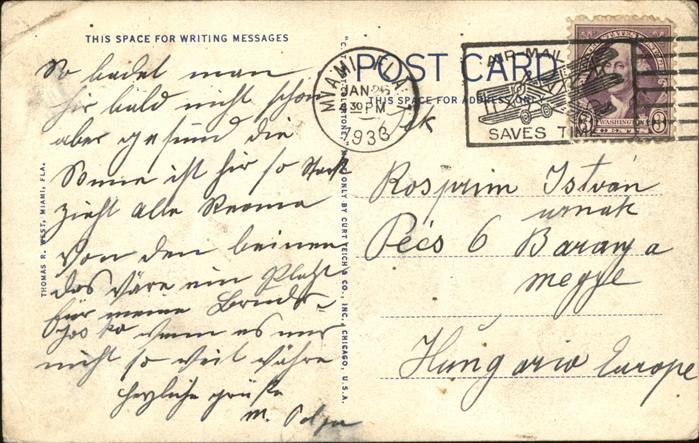 THIS SPACE FOR WRITING MESSAGES
So badet man
hir bald nicht schön
aber gesund die
Sonne ist hir so stark
zieht alle Reoma
von den beinen
das wäre ein Platz
für meine Bruder
wenn es nur
nicht so weit währe
herzliche grüße
M.
THOMAS R. WEST, MIAMI, FLA.
"C. T. ART-COLORTONE" MADE ONLY BY CURT TEICH & CO., INC., CHICAGO, U.S.A.
POST CARD
THIS SPACE FOR ADDRESS ONLY
MIAMI, FLA.
JAN 26
4 30 PM
1933
AIR MAIL
SAVES TIME
UNITED STATES POSTAGE
WASHINGTON
3 CENTS 3
Rosprim István
urnak
Pécs 6 Baranya
megye
Hungaria Europe